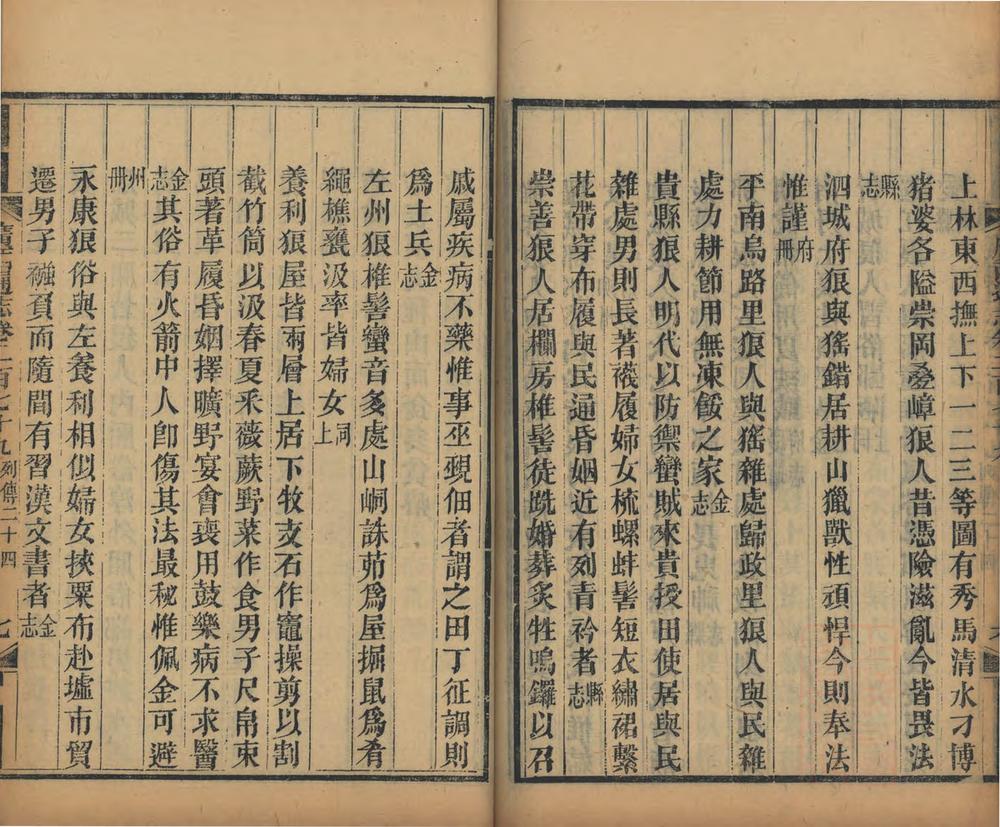 上林東西撫上下一二三等圖有秀馬清水刁博
猪婆各隘崇岡疊嶂狼人昔憑險滋亂今皆畏法
縣志
泗城府狼與猺錯居耕山獵獸性頑悍今則奉法
惟謹府冊
平南烏路里狼人與猺雜處歸政里狼人與民雜
處力耕節用無凍餒之家金志
貴縣狼人明代以防禦蠻賊來貴授田使居與民
雜處男則長著襪履婦女梳螺蚌髻短衣繡裙繫
花帶穿布履與民通昏姻近有列青衿者縣志
崇善狼人居欄房椎髻徒跣婚葬炙牲鳴鑼以召
戚屬疾病不藥惟事巫覡佃者謂之田丁征調則
爲土兵金志
左州狼椎髻蠻音多處山峒誅茆爲屋掘鼠爲肴
繩樵甕汲率皆婦女同上
養利狼屋皆兩層上居下牧支石作竈操剪以割
截竹筒以汲春夏采薇蕨野菜作食男子尺帛束
頭著革履昏姻擇曠野宴會喪用鼓樂病不求醫
金志其俗有火箭中人卽傷其法最秘惟佩金可避
州冊
永康狼俗與左養利相似婦女挾粟布赴墟市貿
遷男子襁負而隨間有習漢文書者金志
廣西通志卷二百七十九 列傳二十四 七